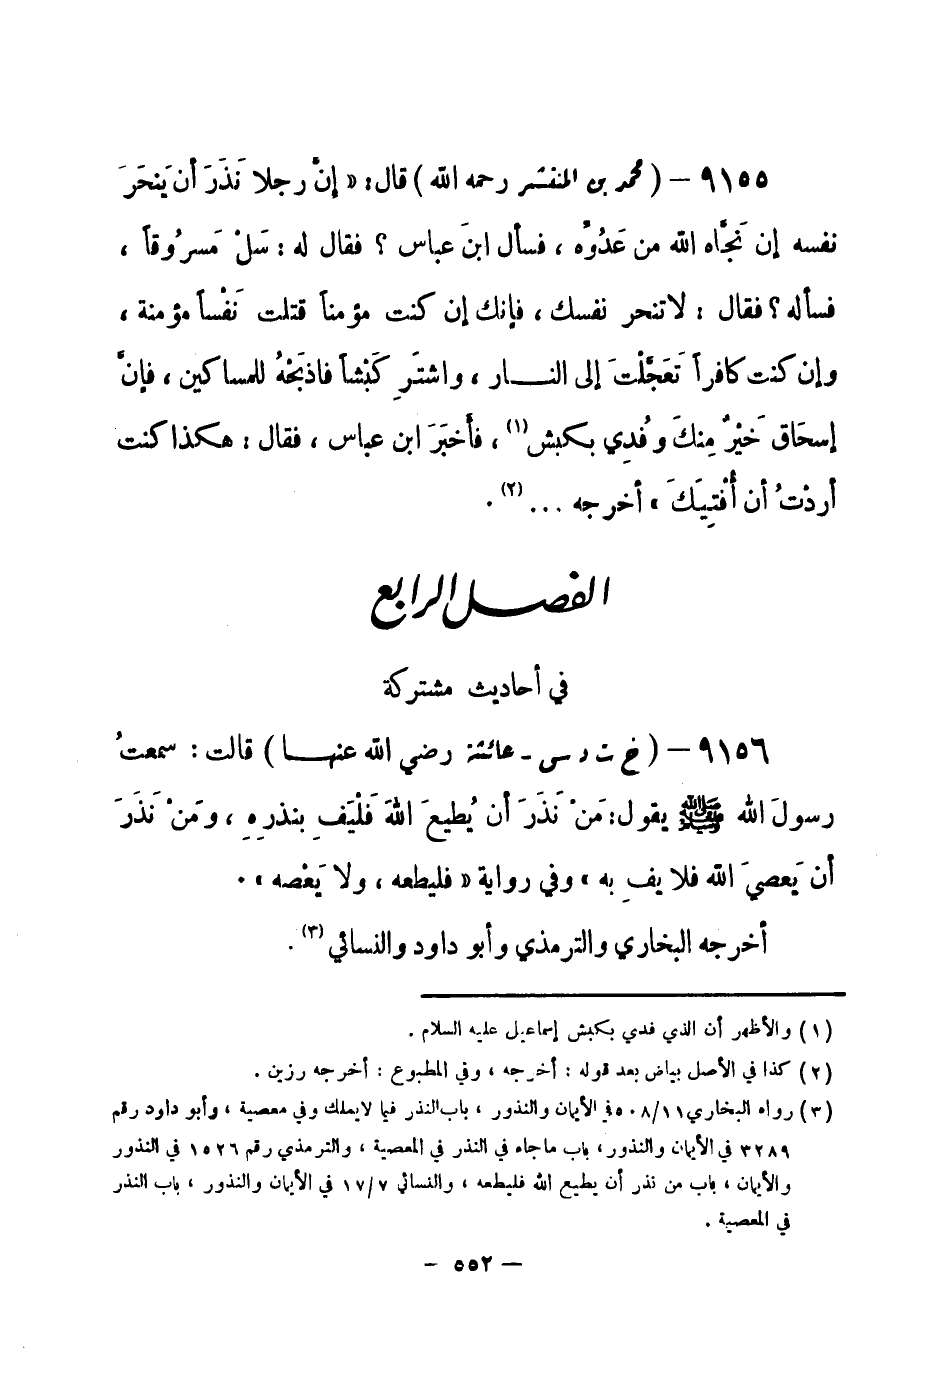 ٩١٥٥ – ( محمد بن المنتشر رحمه الله ) قال : « إنَّ رجلا نَذَرَ أن يَنحَرَ
نفسه إن نَجَّاه الله من عَدُوِّه ، فسأل ابنَ عباس ؟ فقال له : سَلْ مَسرُوقاً ،
فسأله ؟ فقال : لاتنحر نفسك ، فإنك إن كنت مؤمناً قتلت نَفْساً مؤمنة ،
وإن كنت كافراً تَعَجَّلْتَ إلى النــار ، واشتَرِ كَبْشاً فاذبَحْهُ للمساكين ، فإنَّ
إسحَاق خَيْرٌ مِنكَ وفُدِي بكبش(١) ، فأَخبَرَ ابن عباس ، فقال : هكذا كنت
أردْتُ أن أُفْتِيَكَ » أخرجه ...(٢) .
الفصل الرابع
في أحاديث مشتركة
٩١٥٦ – ( خ ت د س - عائشة رضي الله عنهــا ) قالت : سمعتُ
رسولَ الله ﷺ يقول : مَنْ نَذَرَ أن يُطيعَ اللهَ فَلْيَفِ بنذرِهِ ، ومَنْ نَذَرَ
أن يَعصيَ الله فلا يفِ به » وفي رواية « فليطعه ، ولا يَعْصه » .
أخرجه البخاري والترمذي وأبو داود والنسائي(٣) .
(١) والأظهر أن الذي فدي بكبش إسماعيل عليه السلام .
(٢) كذا في الأصل بياض بعد قوله : أخرجه ، وفي المطبوع : أخرجه رزين .
(٣) رواه البخاري ٥٠٨/١١ في الأيمان والنذور ، باب النذر فيما لايملك وفي معصية ، وأبو داود رقم
٣٢٨٩ في الأيمان والنذور ، باب ماجاء في النذر في المعصية ، والترمذي رقم ١٥٢٦ في النذور
والأيمان ، باب من نذر أن يطيع الله فليطعه ، والنسائي ١٧/٧ في الأيمان والنذور ، باب النذر
في المعصية .
– ٥٥٢ –